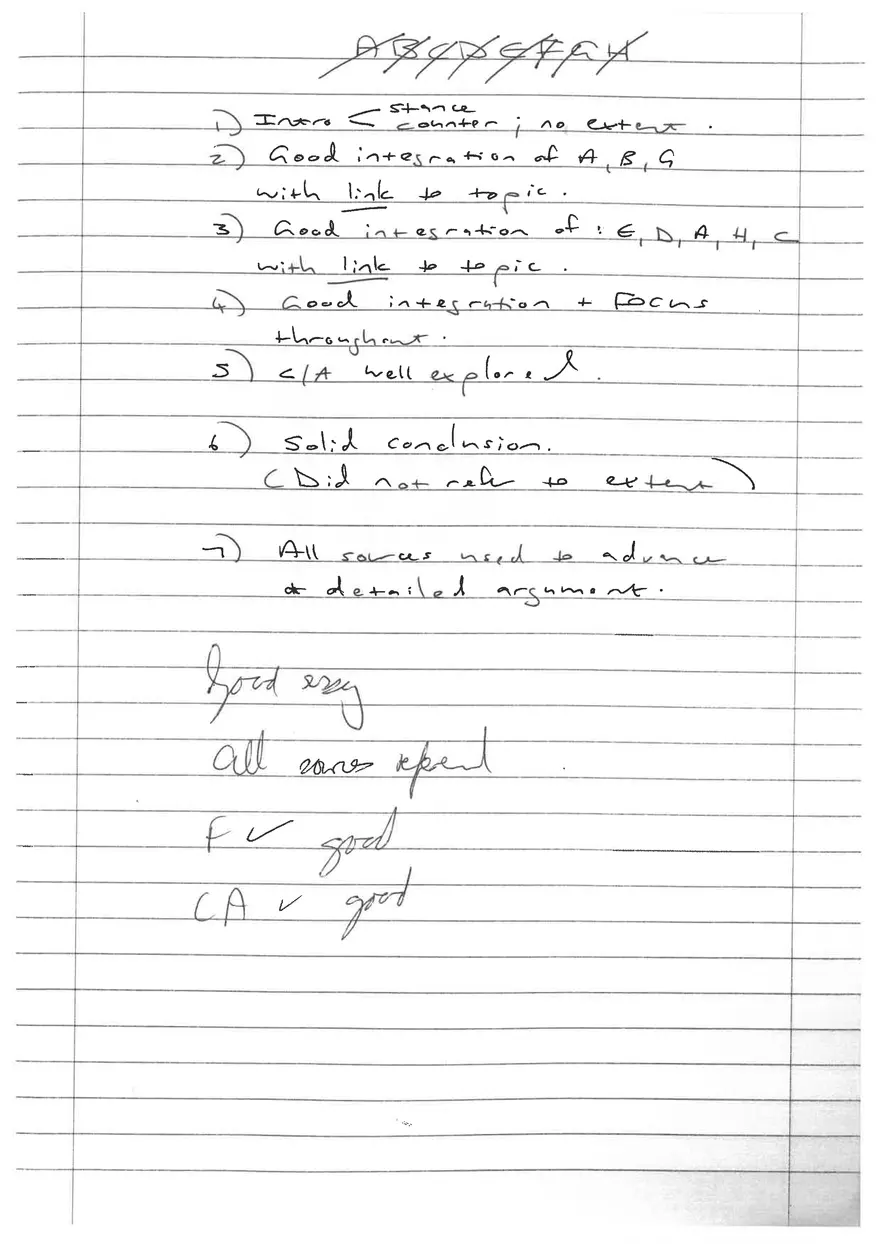 A B C D E F G H
1) Intro < stance
counter ; no extent .
2) Good integration of A, B, G
with link to topic .
3) Good integration of : E, D, A, H, C
with link to topic .
4) Good integration + Focus
throughout .
5) C/A well explored .
6) Solid conclusion.
( Did not refer to extent )
7) All sources used to advance
detailed argument .
Good essay
All
F ✓ good
CA ✓ good